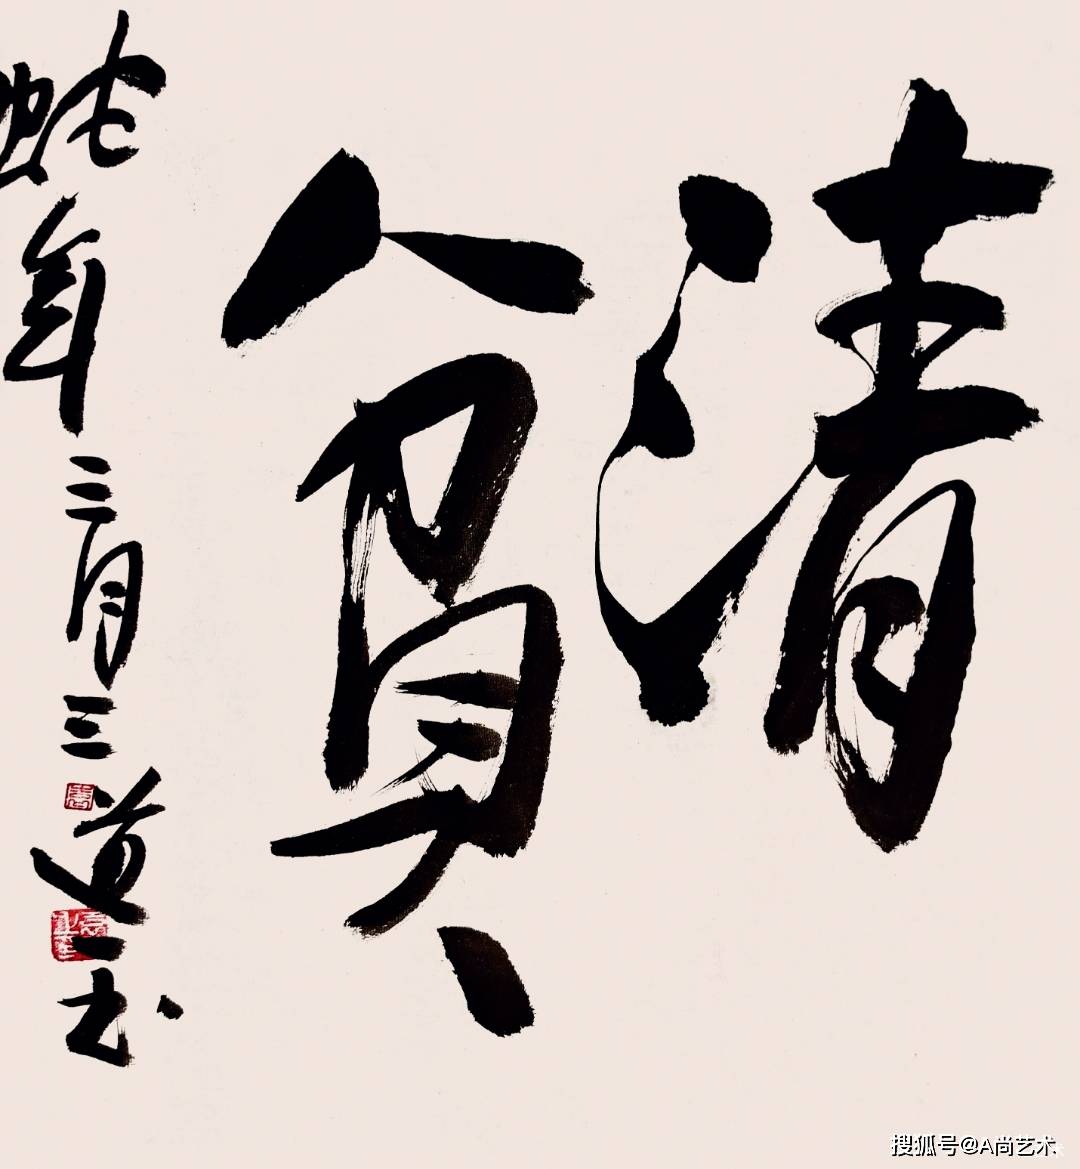 清貧
蛇年三月三道一书
搜狐号@A尚艺术